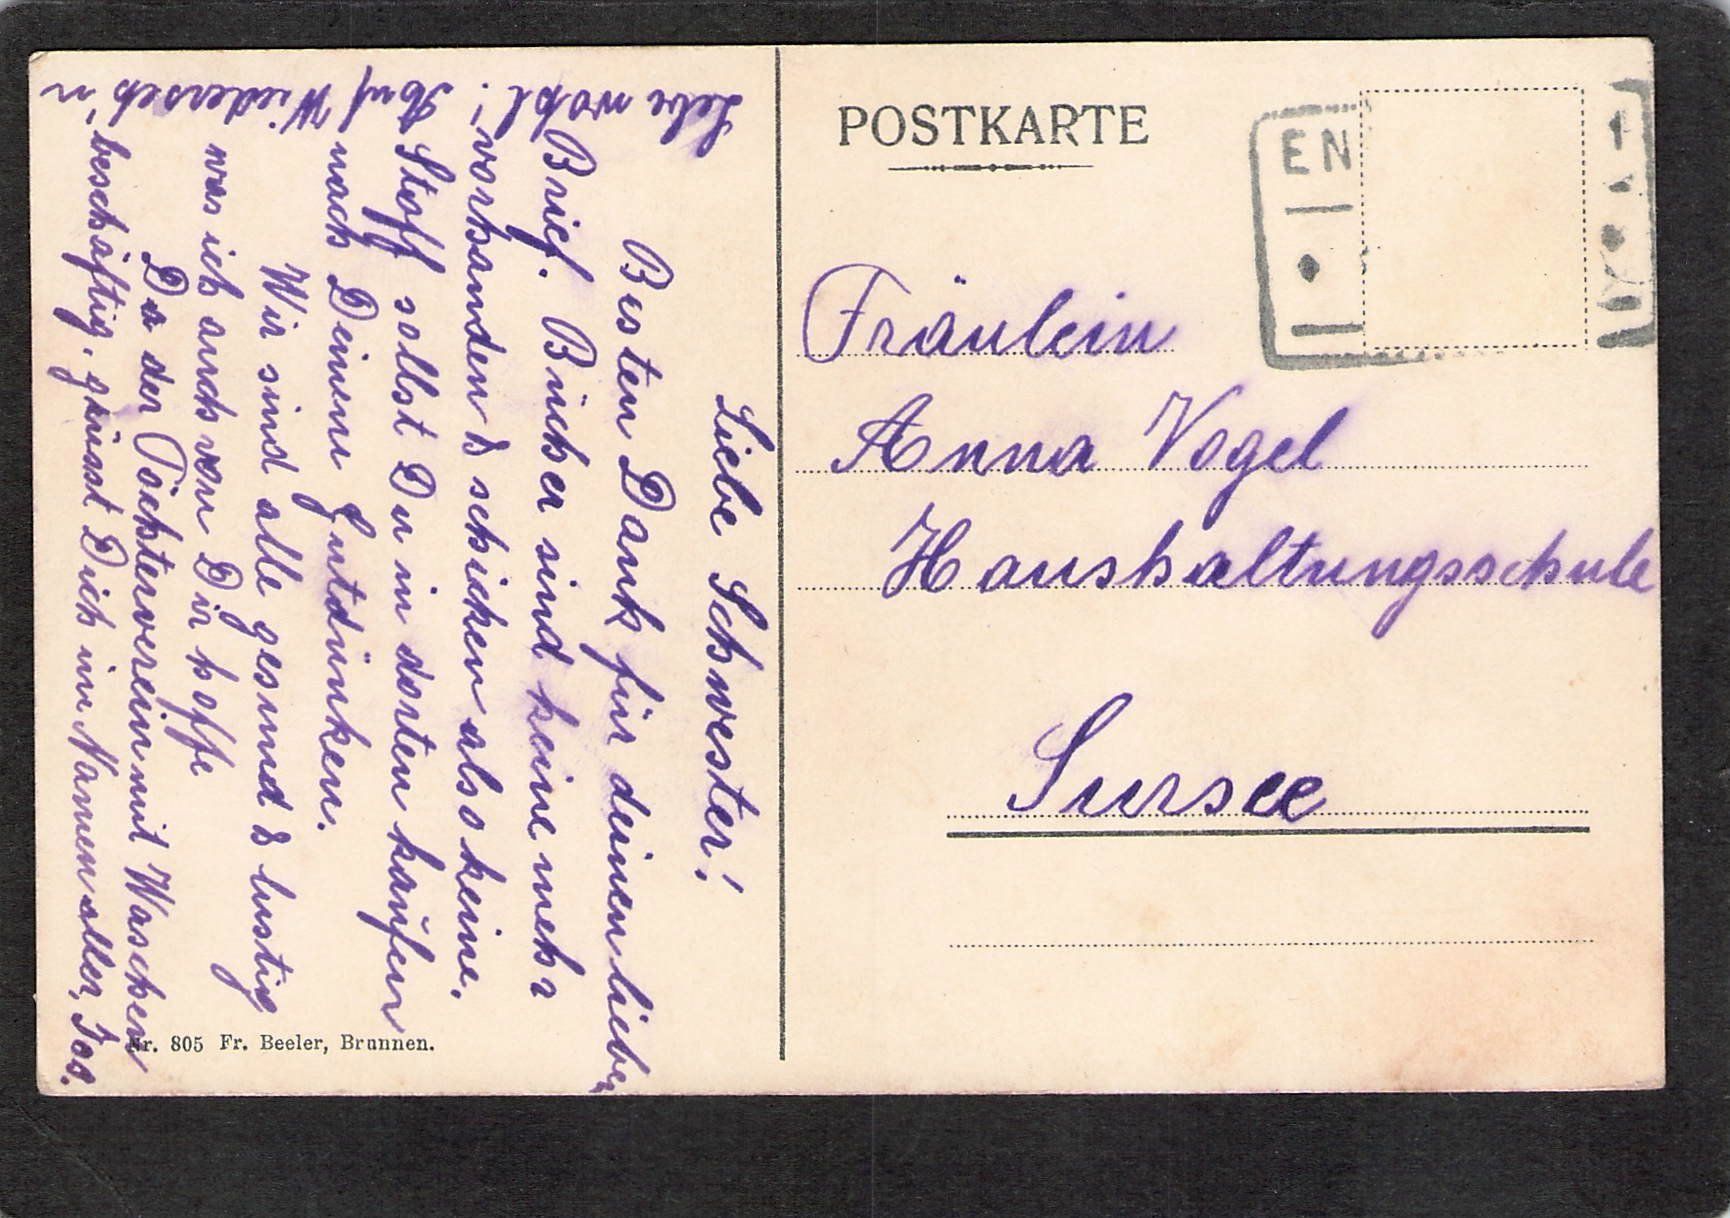 POSTKARTE
EN
Fräulein
Anna Vogel
Haushaltungsschule
Sursee
Liebe Schwester!
Besten Dank für deinen lieben
Brief. Bücher sind keine mehr
vorhanden & schicken also keine.
Stoff sollst Du in dorten kaufen
nach Deinem Gutdünken.
Wir sind alle gesund & lustig
was ich auch von Dir hoffe
Da der Töchterverein mit Waschen
beschäftig. grüsst Dich im Namen aller, Jos.
Lebe wohl! Auf Wiederseh'n
Nr. 805 Fr. Beeler, Brunnen.